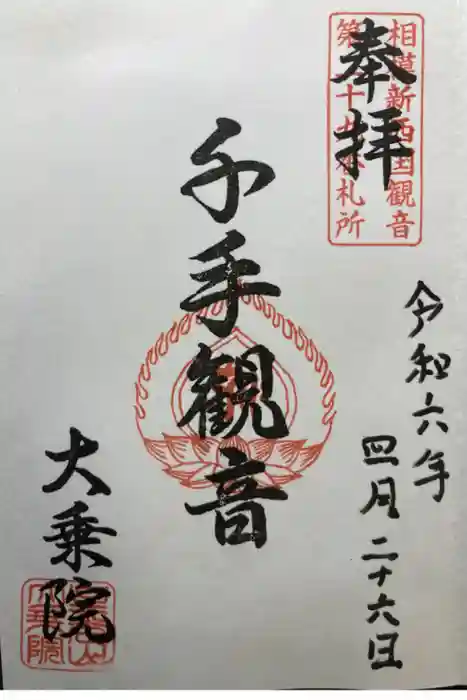 奉拝
相模新西国観音
第二十九番札所
令和六年
四月二十六日
千手観音
大乗院